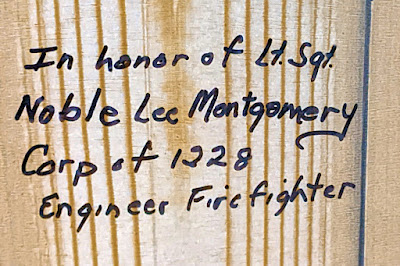 In honor of Lt. Sgt.
Noble Lee Montgomery
Corp of 1228
Engineer Firefighter